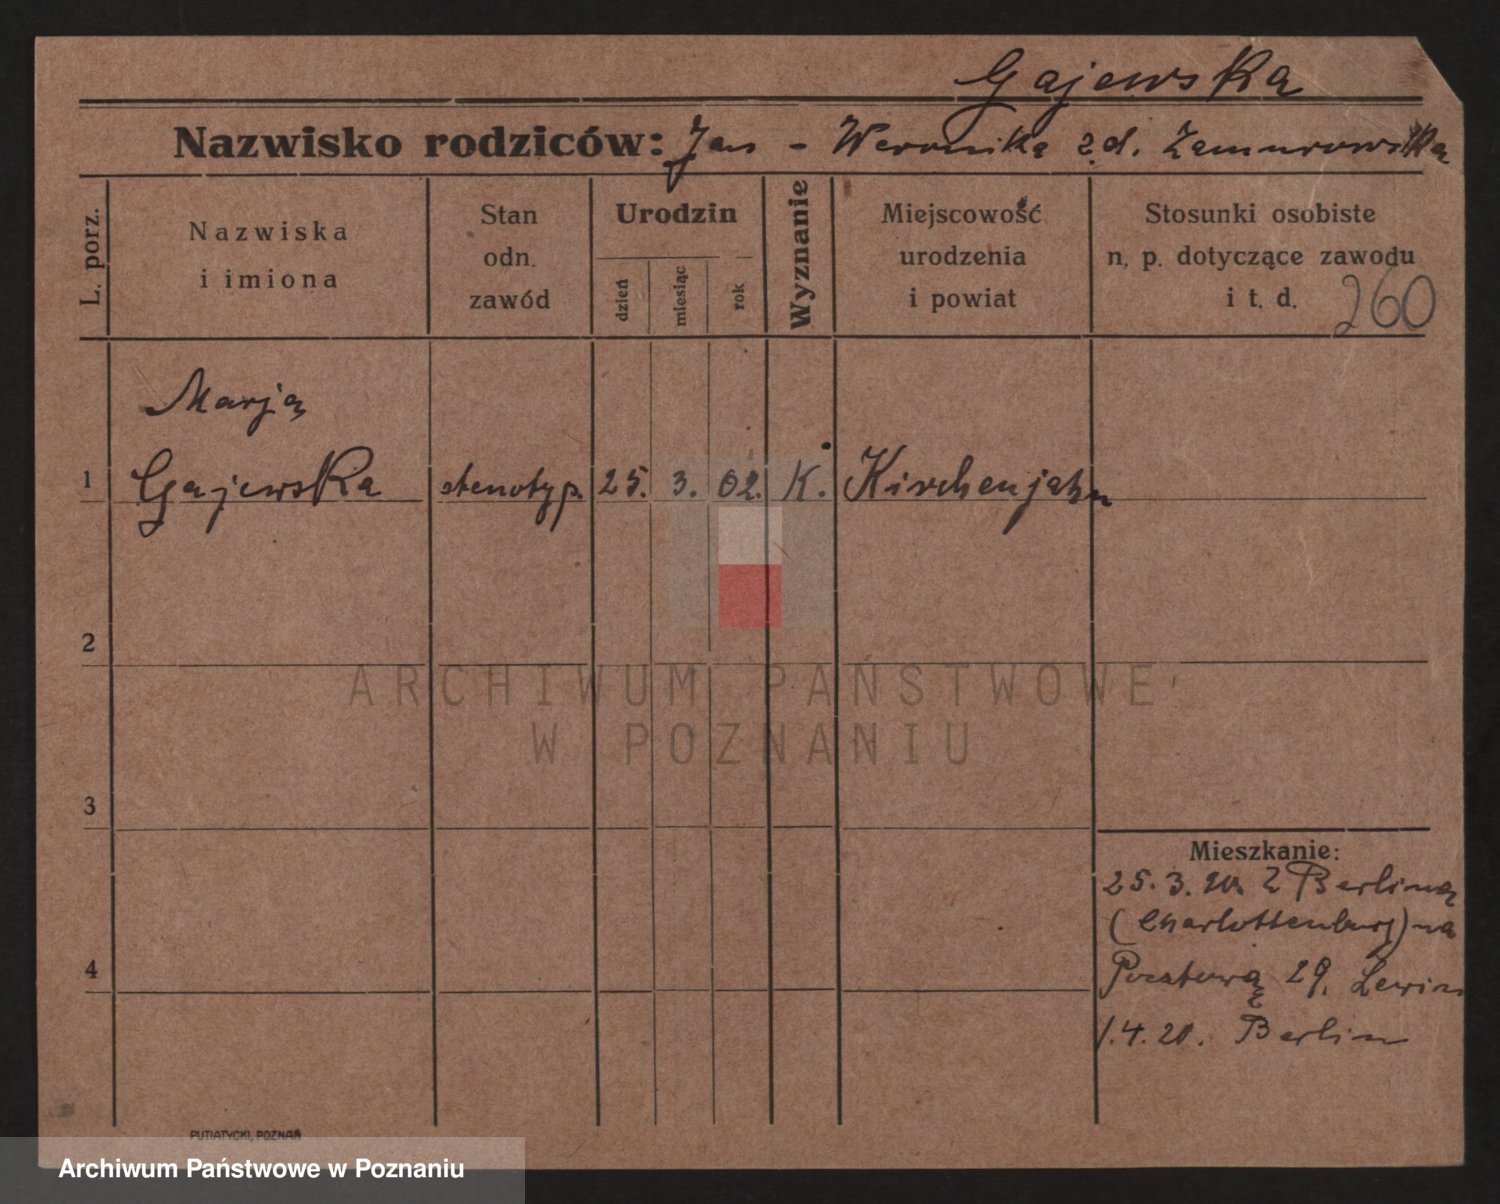 Gajewska
Nazwisko rodziców: Jan - Weronika z.d.
L. porz.
Nazwiska
i imiona
Stan
odn.
zawód
Urodzin
dzień
miesiąc
rok
Wyznanie
Miejscowość
urodzenia
i powiat
Stosunki osobiste
n. p. dotyczące zawodu
i t. d.
260
Marja
1 Gajewska stenotyp. 25. 3. 02. K. Kirchenjahn
2
3
4
Mieszkanie:
25. 3. 20. Z Berlina
(Charlottenburg) na
Pocztową 29. Lewin
1.4.20. Berlin
PUTIATYCKI, POZNAŃ
ARCHIWUM PAŃSTWOWE
W POZNANIU
Archiwum Państwowe w Poznaniu